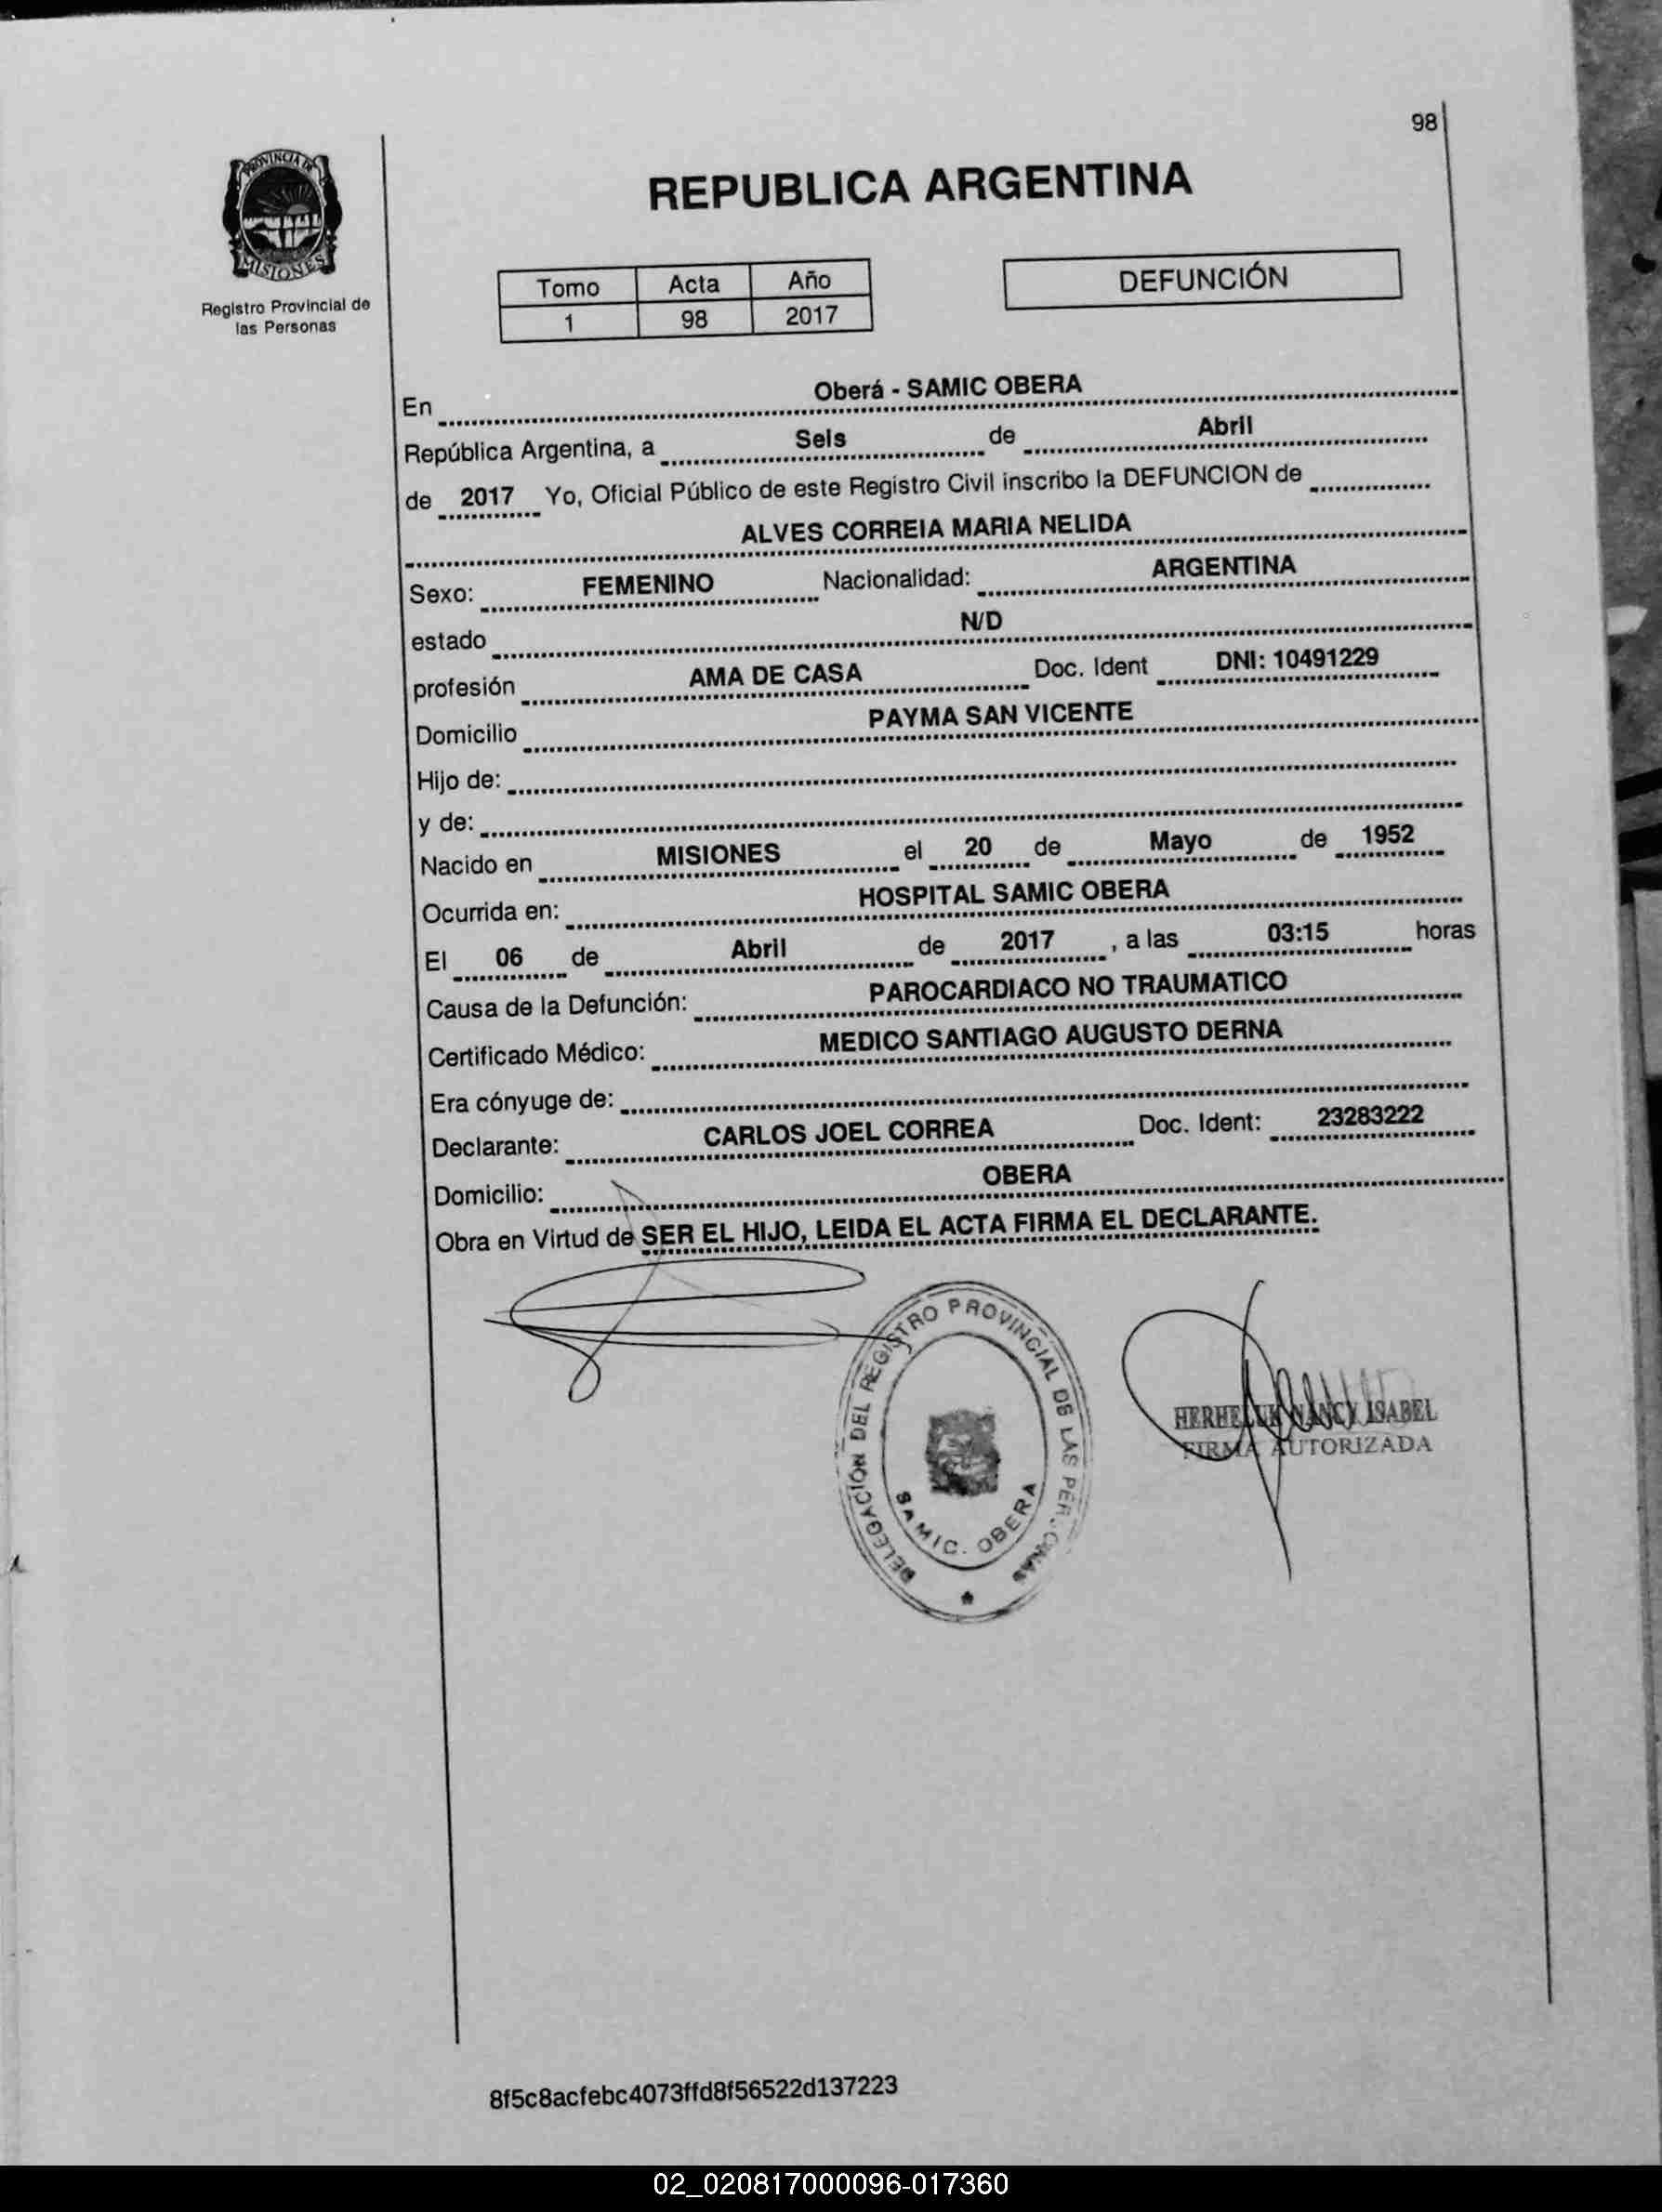 98
PROVINCIA DE
MISIONES
Registro Provincial de
las Personas
REPUBLICA ARGENTINA
Tomo Acta Año
1 98 2017
DEFUNCIÓN
En Oberá - SAMIC OBERA
República Argentina, a Seis de Abril
de 2017 Yo, Oficial Público de este Registro Civil inscribo la DEFUNCION de
ALVES CORREIA MARIA NELIDA
Sexo: FEMENINO Nacionalidad: ARGENTINA
estado N/D
profesión AMA DE CASA Doc. Ident DNI: 10491229
Domicilio PAYMA SAN VICENTE
Hijo de:
y de:
Nacido en MISIONES el 20 de Mayo de 1952
Ocurrida en: HOSPITAL SAMIC OBERA
El 06 de Abril de 2017 , a las 03:15 horas
Causa de la Defunción: PAROCARDIACO NO TRAUMATICO
Certificado Médico: MEDICO SANTIAGO AUGUSTO DERNA
Era cónyuge de:
Declarante: CARLOS JOEL CORREA Doc. Ident: 23283222
Domicilio: OBERA
Obra en Virtud de SER EL HIJO, LEIDA EL ACTA FIRMA EL DECLARANTE.
DELEGACIÓN DEL REGISTRO PROVINCIAL DE LAS PERSONAS
SAMIC. OBERA
NANCY ISABEL
FIRMA AUTORIZADA
8f5c8acfebc4073ffd8f56522d137223
02_020817000096-017360